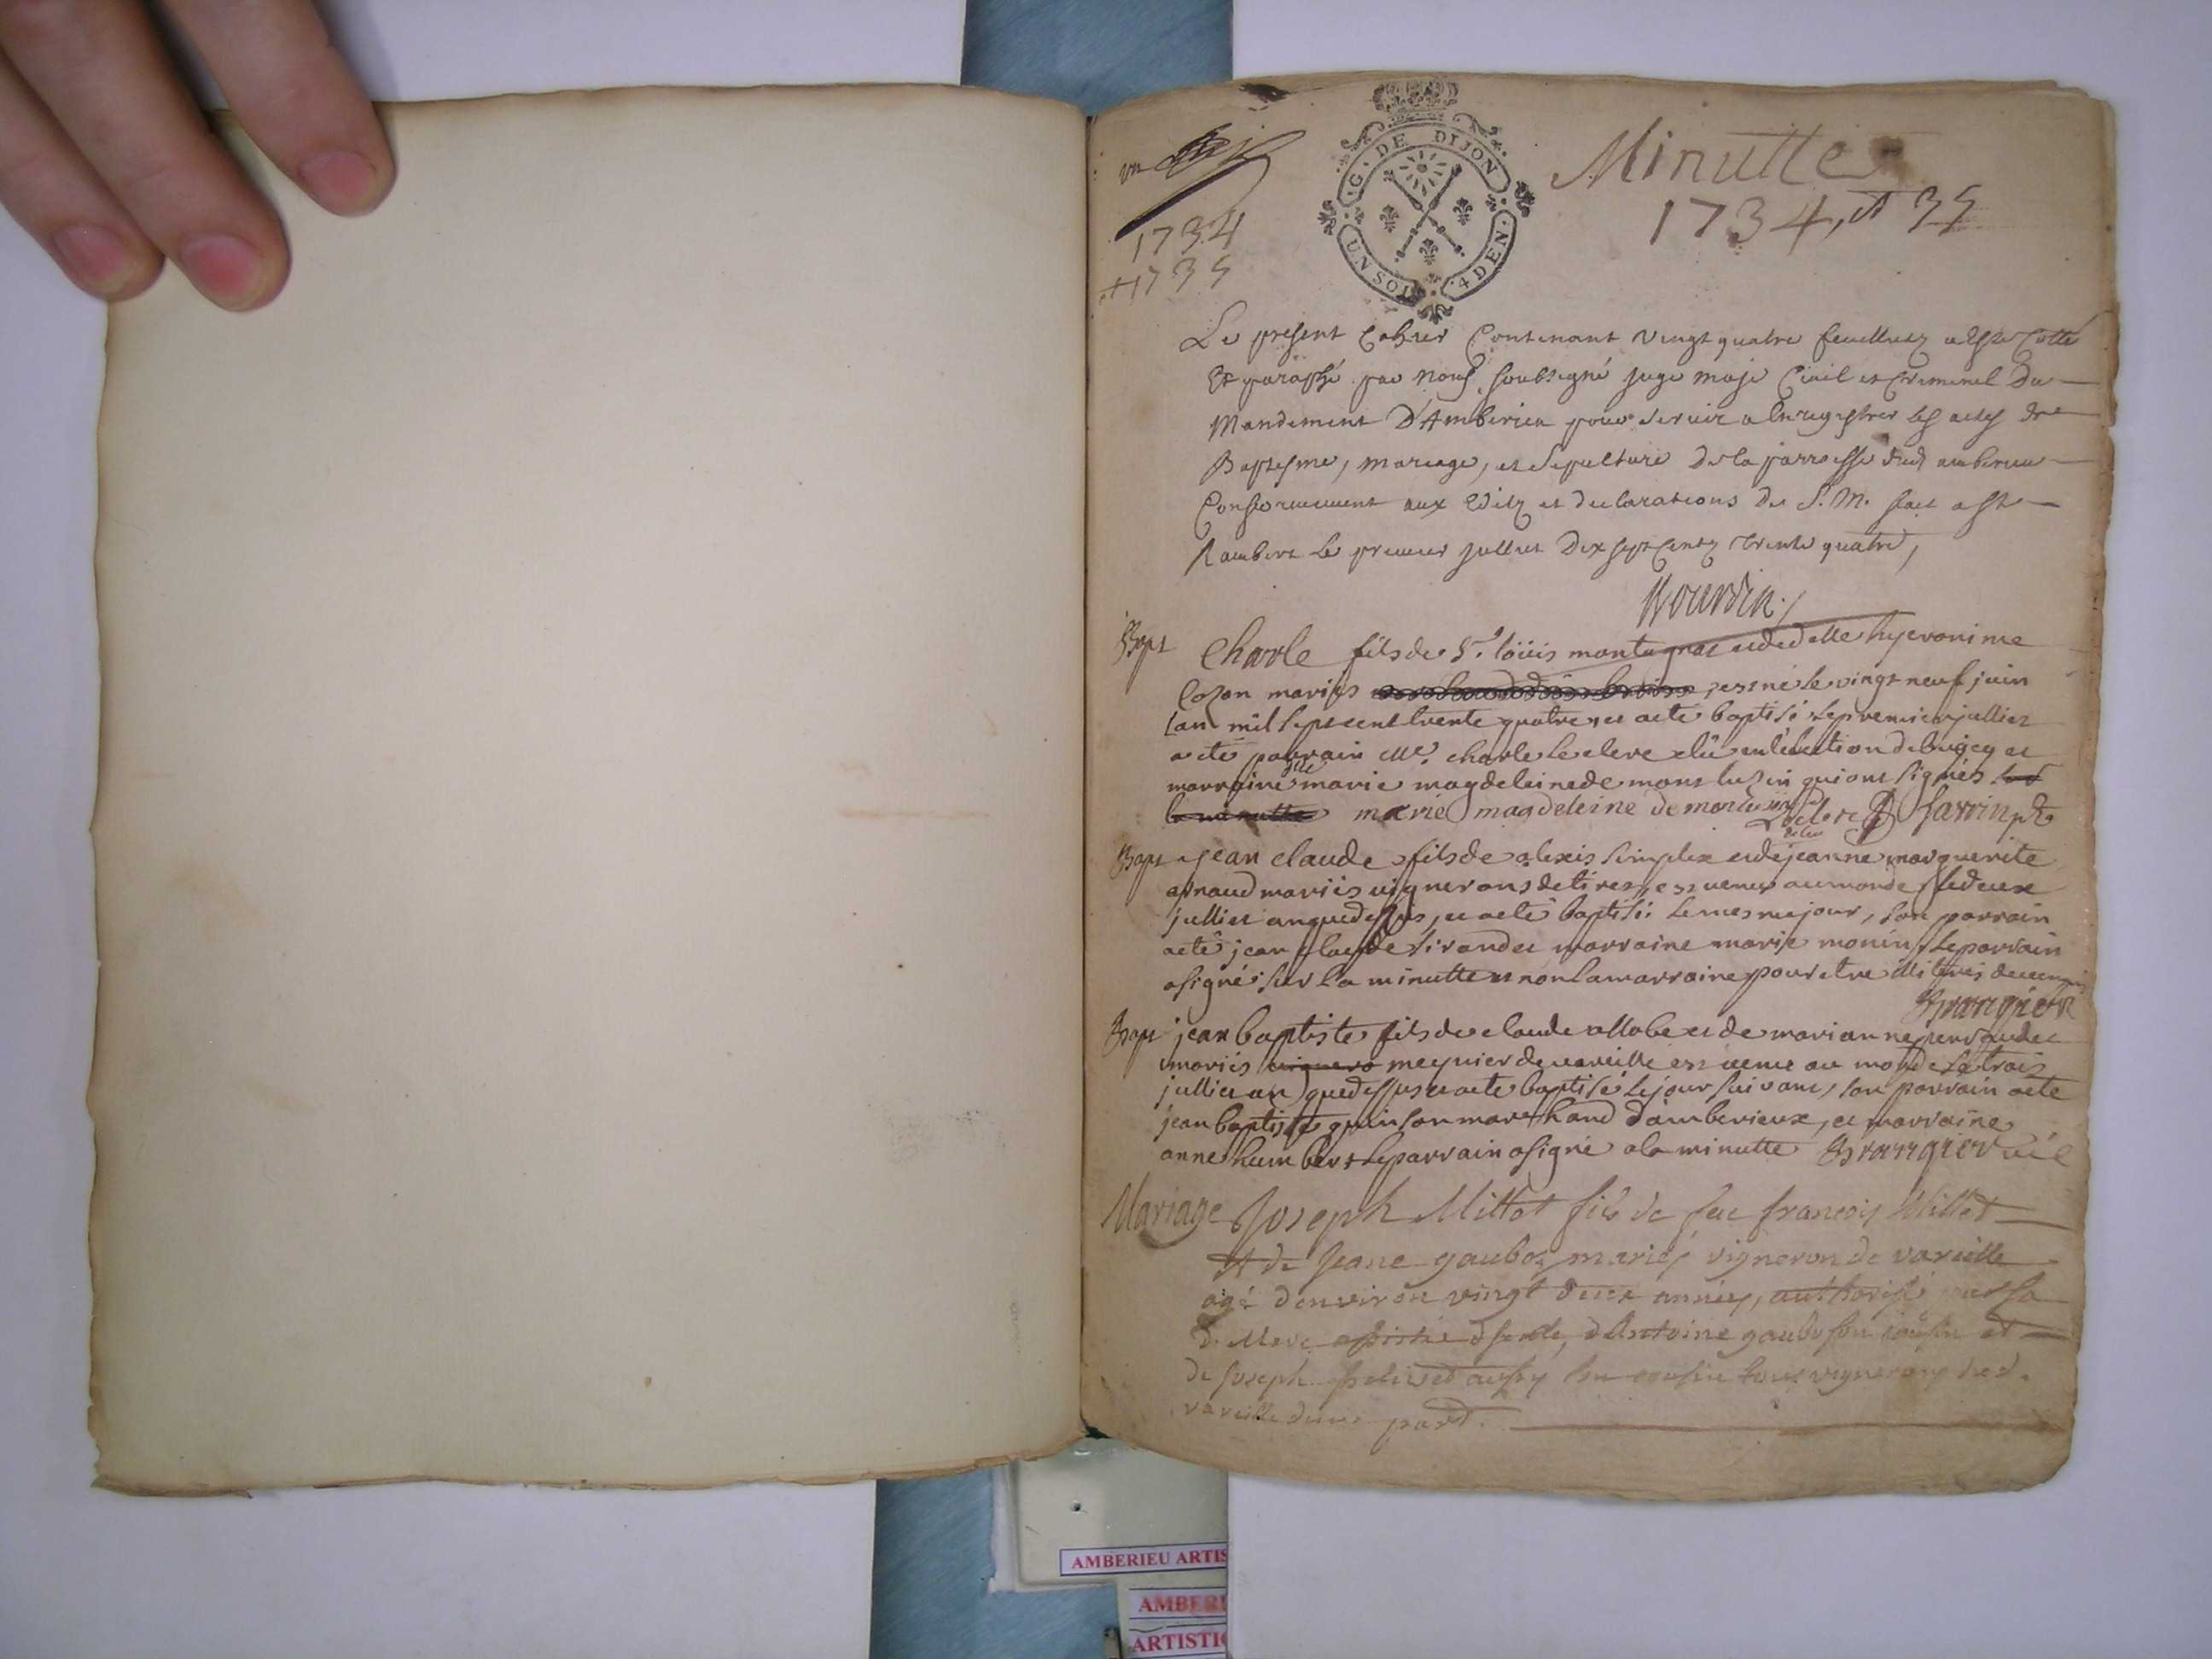 Minutte
1734, et 35
1734
et 1735
G. DE DIJON
UN SOL 4 DEN.
Le present Cahier Contenant vingt quatre feuilletz a esté Cotté
Et paraphé par nous soubsigné juge maje Civil et Criminel Du
Mandement D'Amberieu pour servir a Enregistrer les actes de
Baptesme, mariage, et sepulture De la parroisse dud amberieu
Conformement aux Editz et declarations De S. M. fait a St
Rambert Le premier juillet Dix sept Centz trente quatre,
Bapt Charle fils de Sr. loüis montagnat et de delle hyeronime
Cozon mariés est né le vingt neuf juin
lan mil sept cent trente quatre et a eté baptisé le premier juillet
a eté parrain Me. charle le clerc elû en l'élection de bugey et
marraine dlle marie magdeleine de mont luzin qui ont signés
la minutte marie magdeleine de montluzin Leclerc Savarin ptre
Bapt jean claude fils de alexis simplex et de jeanne marguerite
arnaud mariés vignerons de tiret, est venu au monde le deux
juillet an que dessus, et a eté baptisé le mesme jour, son parrain
a eté jean claude sirand et marraine marie monin, le parrain
a signé sur la minutte et non la marraine pour etre illiterés
Brangier
Bapt jean baptiste fils de claude allabe et de marianne
mariés meunier de vareille est venu au monde le trois
juillet an que dessus et a eté baptisé le jour suivant, son parrain a eté
jean baptiste quinson marchand d'amberieux, et marraine
anne humbert le parrain a signé a la minutte Brangier vic
Mariage Joseph Millet fils de feu françois Millet
et de Jeane gauboz mariés vigneron de vareille
agé d'environ vingt deux années, authorisé par sa
d. Mere assisté d'icelle, d'Antoine gaubo son cousin et
de Joseph aussy son cousin tous vignerons dud.
vareille d'une part.
AMBERIEU ARTIS
AMBERI
ARTISTI